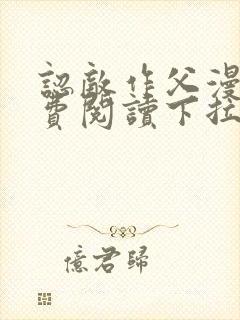 認敵作父漫
費閱讀下拉
億君歸